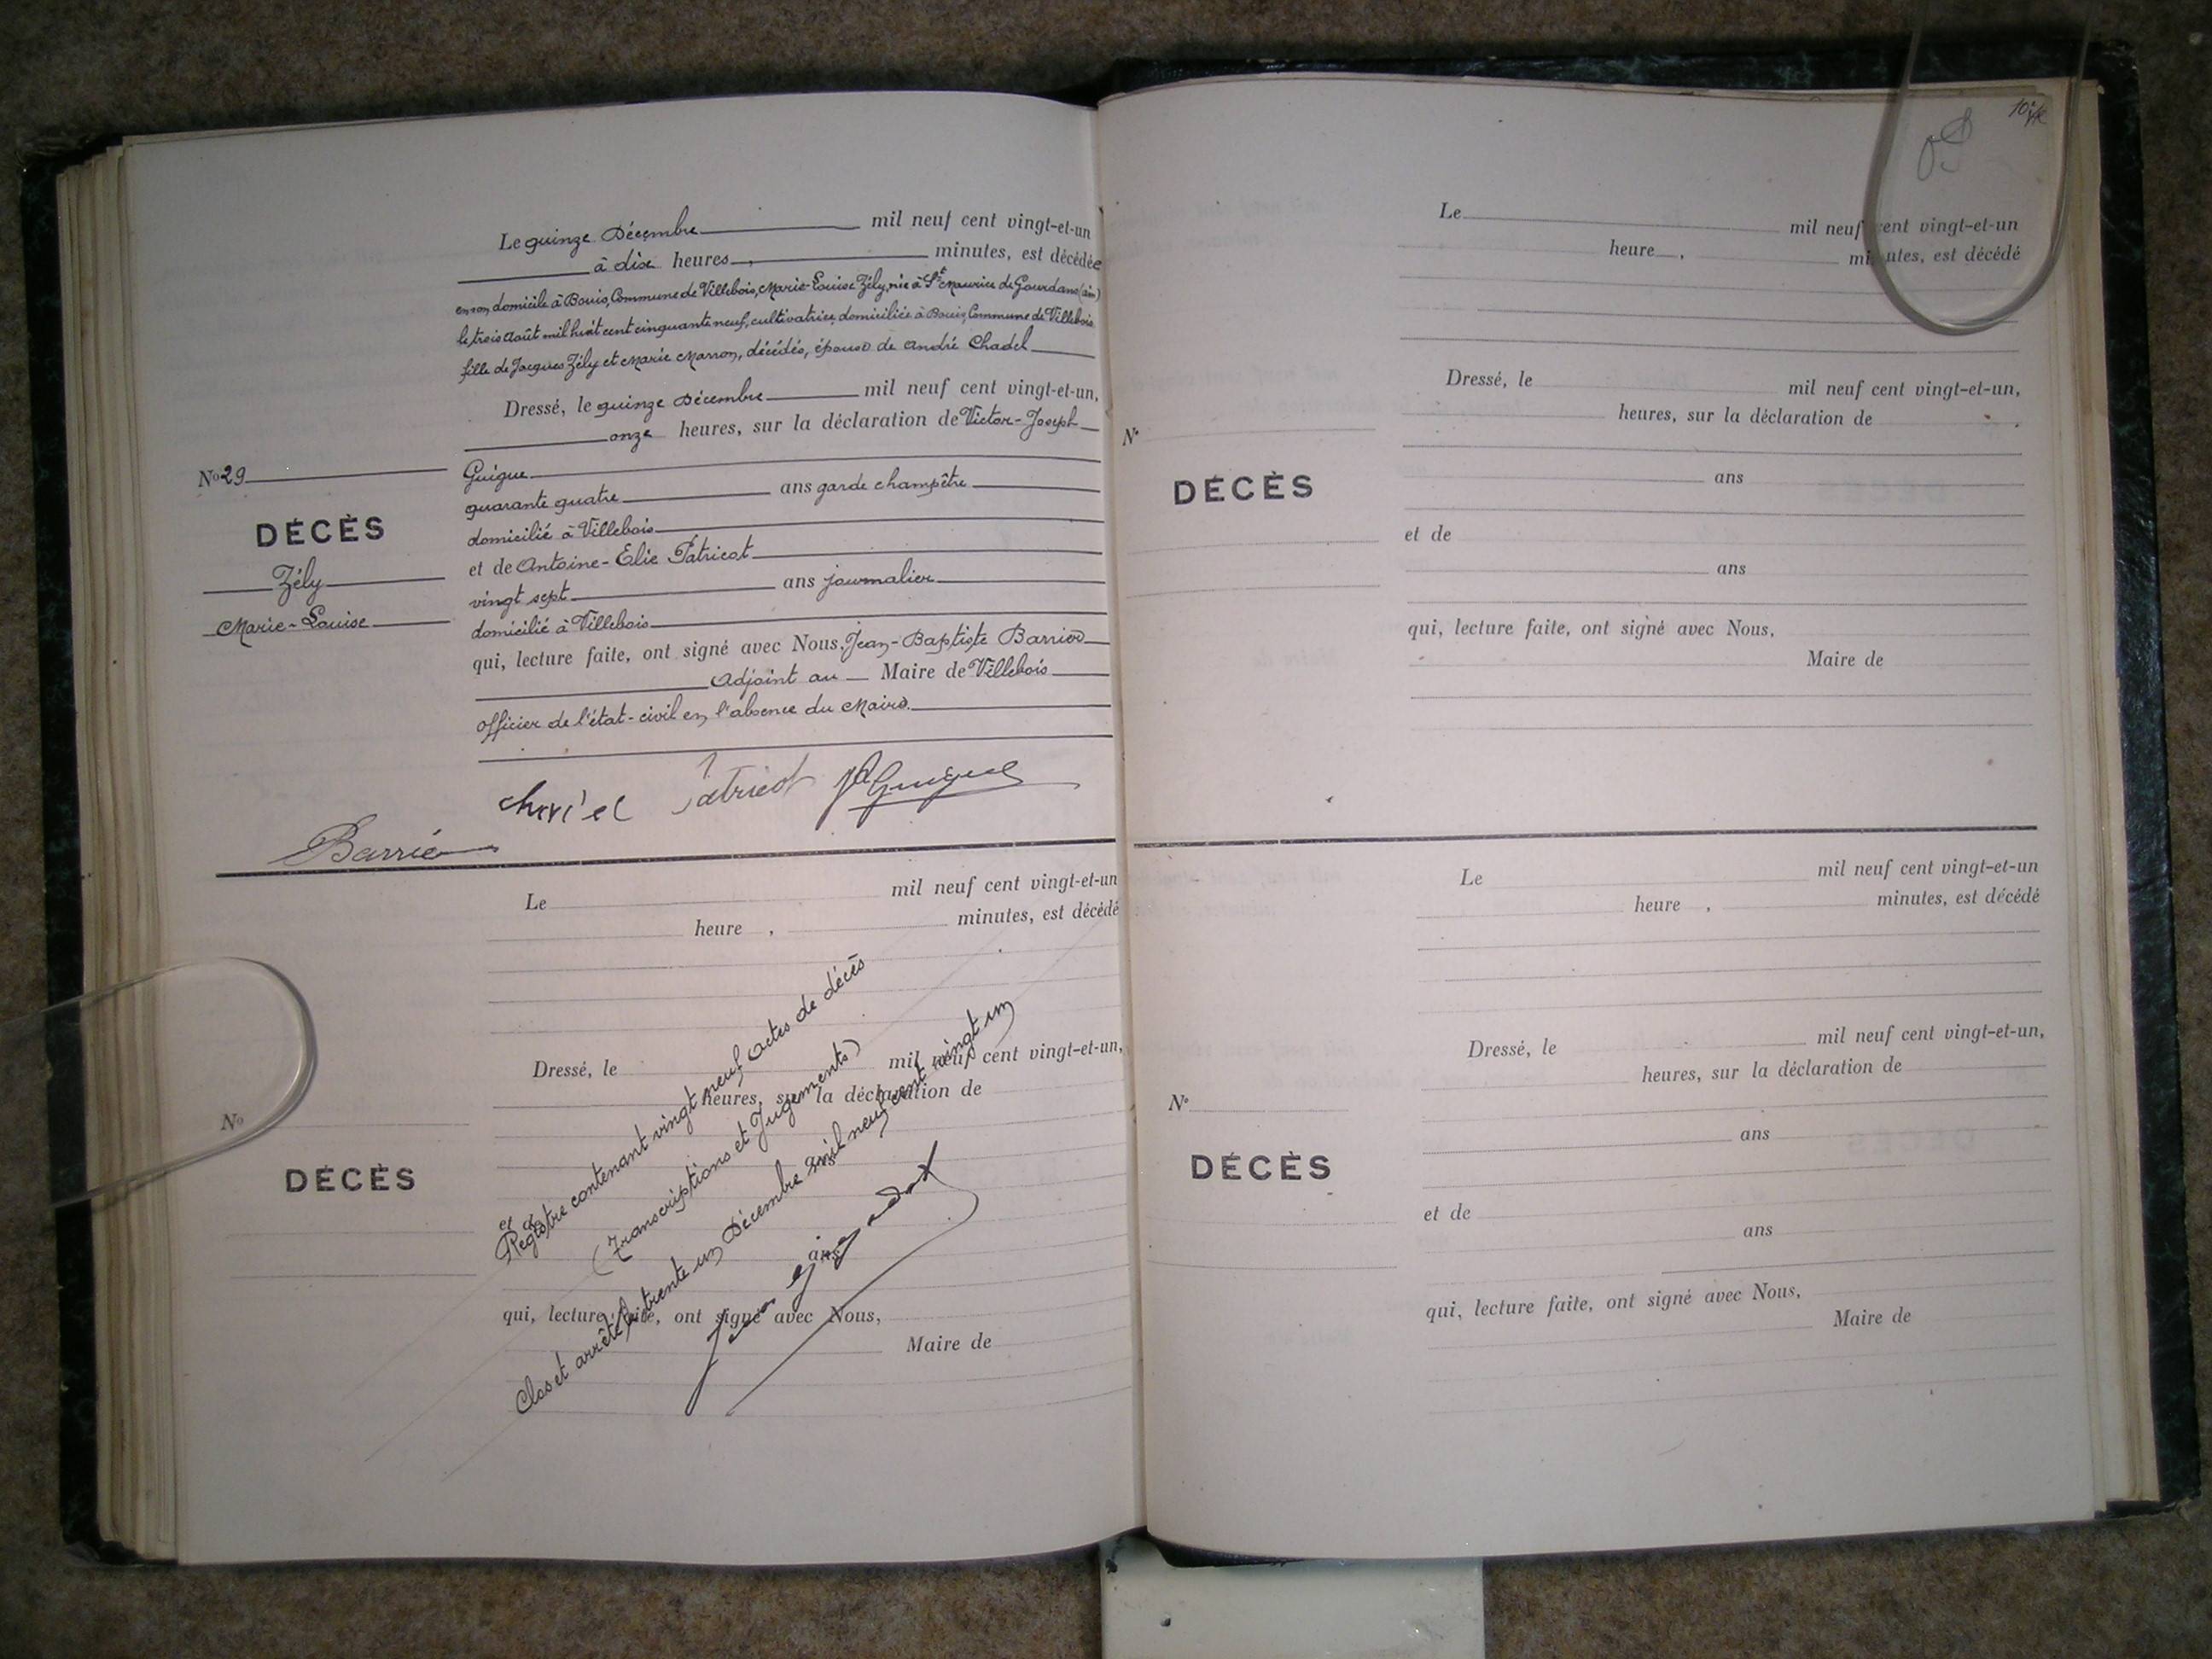 Le quinze Décembre mil neuf cent vingt-et-un
à dix heures, minutes, est décédée
en son domicile à Bouis, Commune de Villebois, Marie-Louise Zély, née à St Maurice de Gourdans (ain)
le trois août mil huit cent cinquante neuf, cultivatrice, domiciliée à Bouis, Commune de Villebois
fille de Jacques Zély et Marie Marron, décédés, épouse de André Chadel
Dressé, le quinze Décembre mil neuf cent vingt-et-un,
onze heures, sur la déclaration de Victor-Joseph
No 29
DÉCÈS
Zély
Marie-Louise
Guigue
quarante quatre ans garde champêtre
domicilié à Villebois
et de Antoine-Elie Patricot
vingt sept ans journalier
domicilié à Villebois
qui, lecture faite, ont signé avec Nous, Jean-Baptiste Barrié
Adjoint au Maire de Villebois
officier de l'état-civil en l'absence du Maire.
Patricot Guigue
Barrié
Le mil neuf cent vingt-et-un
heure , minutes, est décédé
Dressé, le mil neuf cent vingt-et-un,
heures, sur la déclaration de
No
DÉCÈS
ans
et de
ans
qui, lecture faite, ont signé avec Nous,
Maire de
Registre contenant vingt neuf actes de décès
(Transcriptions et Jugements)
Clos et arrêté le trente un Décembre mil neuf cent vingt un
Le mil neuf cent vingt-et-un
heure , minutes, est décédé
Dressé, le mil neuf cent vingt-et-un,
heures, sur la déclaration de
No
DÉCÈS
ans
et de
ans
qui, lecture faite, ont signé avec Nous,
Maire de
Le mil neuf cent vingt-et-un
heure , minutes, est décédé
Dressé, le mil neuf cent vingt-et-un,
heures, sur la déclaration de
No
DÉCÈS
ans
et de
ans
qui, lecture faite, ont signé avec Nous,
Maire de